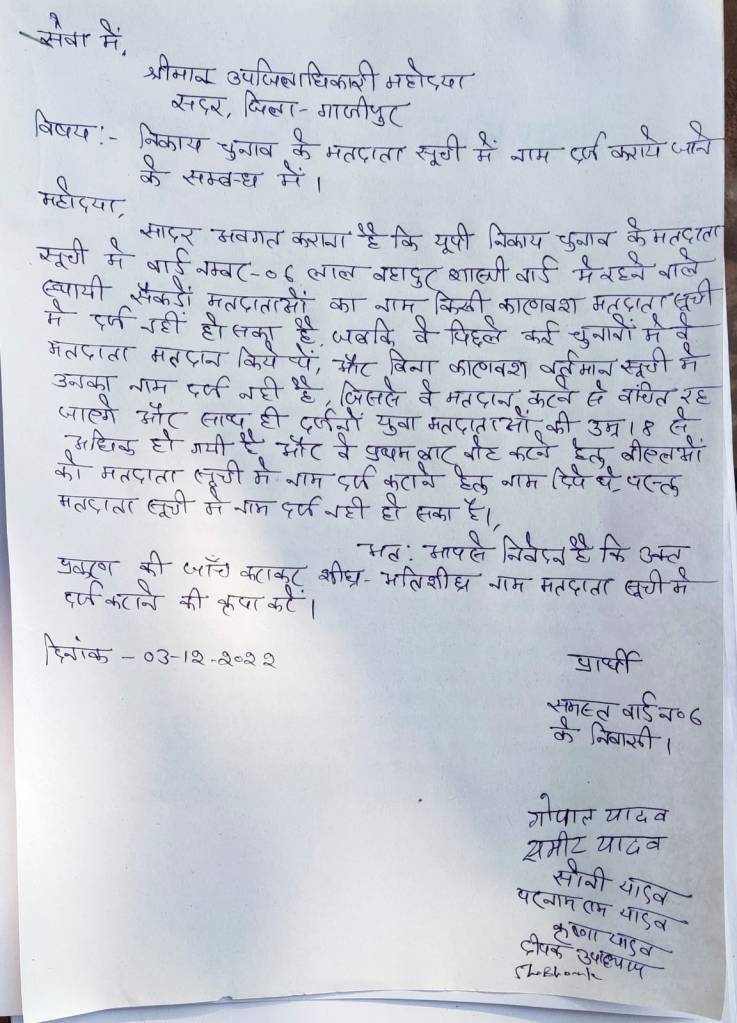 सेवा में,
श्रीमान उपजिलाधिकारी महोदया
सदर, जिला - गाजीपुर
विषय :- निकाय चुनाव के मतदाता सूची में नाम दर्ज कराये जाने
के सम्बन्ध में ।
महोदया,
सादर अवगत कराना है कि यूपी निकाय चुनाव के मतदाता
सूची मे वार्ड नम्बर - 06 लाल बहादुर शास्त्री वार्ड मे रहने वाले
स्थायी सैकडों मतदाताओं का नाम किसी कारणवश मतदाता सूची
मे दर्ज नहीं हो सका है, जबकि वे पिछले कई चुनावों मे वे
मतदाता मतदान किये थे, और बिना कारणवश वर्तमान सूची मे
उनका नाम दर्ज नही है, जिससे वे मतदान करने से वंचित रह
जाएगे और साथ ही दर्जनों युवा मतदाताओं की उम्र 18 से
अधिक हो गयी है और वे प्रथम बार वोट करने हेतु बीएलओं
को मतदाता सूची मे नाम दर्ज कराने हेतु नाम दिये थे परन्तु
मतदाता सूची मे नाम दर्ज नही हो सका है।,
अत: आपसे निवेदन है कि उक्त
प्रकरण की जाँच कराकर शीघ्र - अतिशीघ्र नाम मतदाता सूची मे
दर्ज कराने की कृपा करें ।
दिनांक - 03-12-2022
प्रार्थी
समस्त वार्ड न० 6
के निवासी ।
गोपाल यादव
समीर यादव
सोनी यादव
राम यादव
कृष्णा यादव
दीपक उपाध्याय